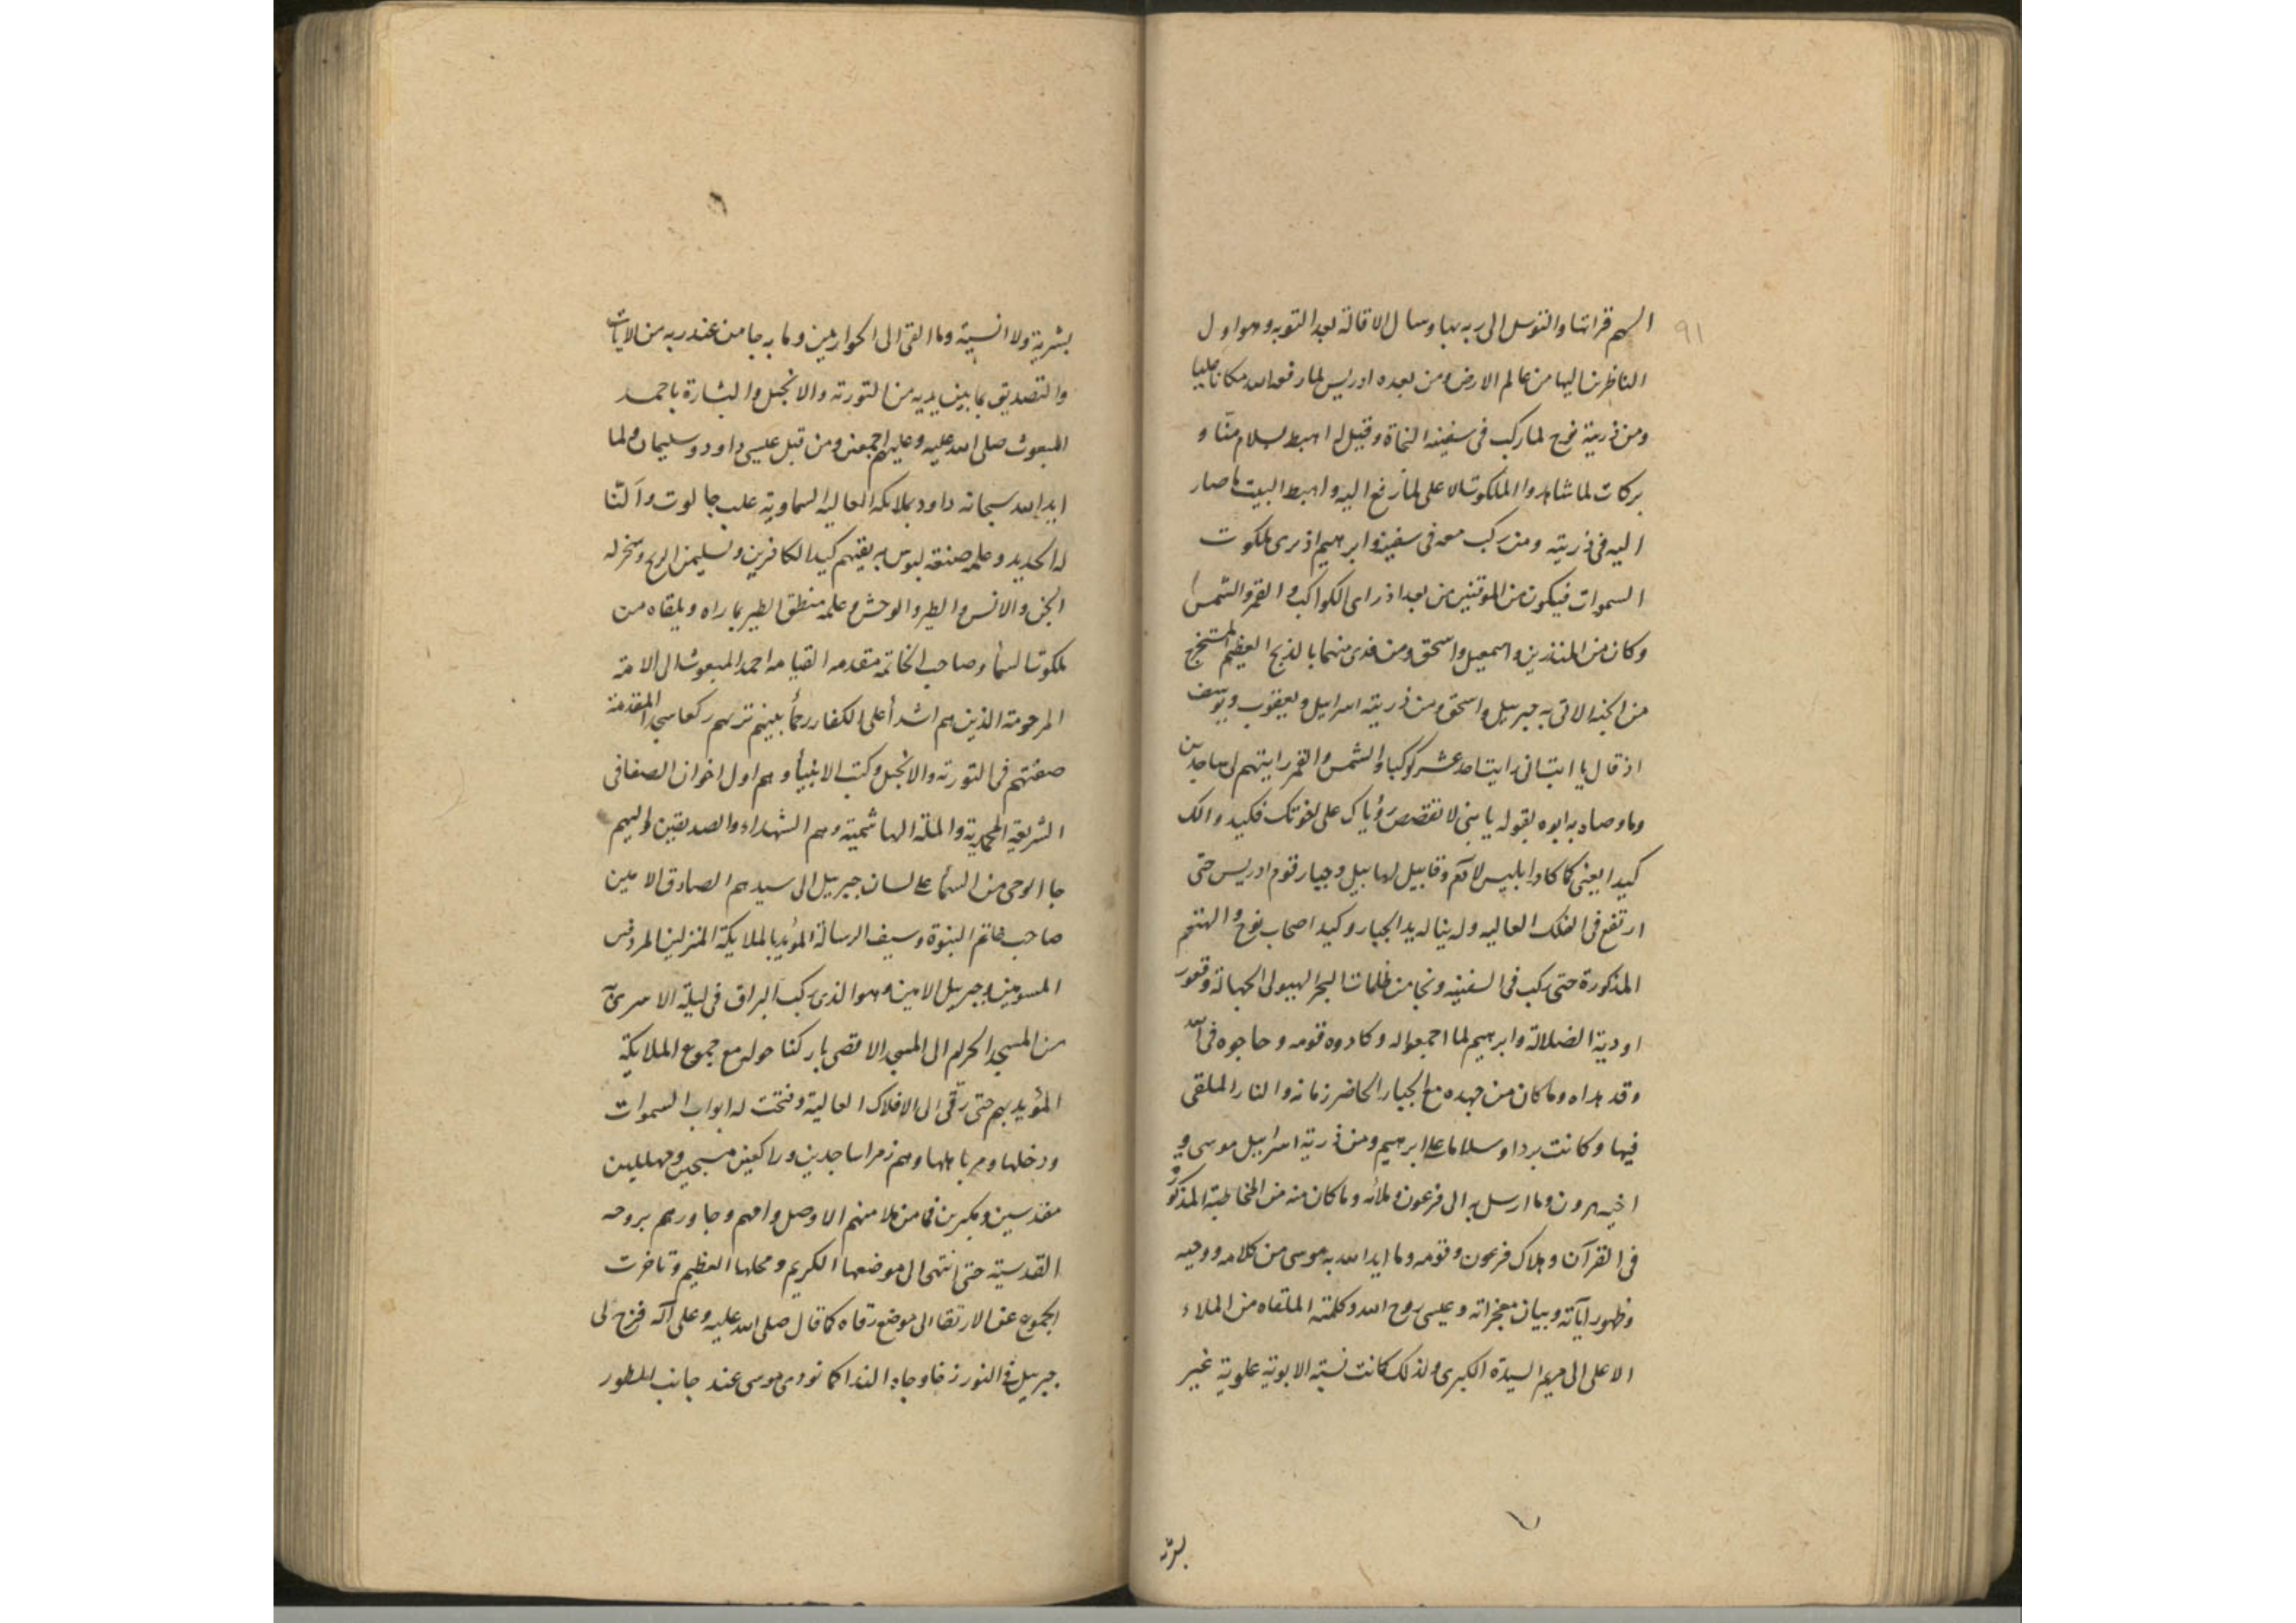 ٩١
اليهم قراتها والتوسل الى ربه بها وسال الاقالة بعد التوبه وهو اول
الناظرين اليها من عالم الارض ومن بعده ادريس لما رفعه الله مكانا عليا
ومن ذريته نوح لما ركب فى سفينه النجاة وقيل له اهبط بسلام منا و
بركات لما شاهدوا الملكوت الاعلى لما رفع اليه واهبط البيت ما صار
اليه فى ذريته ومن ركب معه فى سفينه وابرهيم اذ يرى ملكوت
السموات فيكون من الموقنين من بعد اذ راى الكواكب والقمر والشمس
وكان من المنذرين واسمعيل واسحق ومن فدى منهما بالذبح العظيم المستخرج
من الجنه الاتى به جبريل واسحق ومن ذريته اسرايل ويعقوب ويوسف
اذ قال يا ابت انى رايت احد عشر كوكبا والشمس والقمر رايتهم لى ساجدين
وما وصاه به ابوه بقوله يا بنى لا تقصص رؤياك على اخوتك فيكيدوا لك
كيدا يعنى كما كاد ابليس لآدم وقابيل لهابيل وجبار قوم ادريس حتى
ارتفع فى الفلك العاليه ولم يناله يد الجبار وكيد اصحاب نوح والهتهم
المذكورة حتى ركب فى السفينه ونجا من ظلمات البحر الهيولى الجهالة وقعور
اودية الضلالة وابرهيم لما اجمعوا له وكادوه قومه وحاجوه فى الله
وقد هداه وما كان من جهده مع الجبار الحاضر زمانه والنار الملقى
فيها وكانت بردا وسلاما على ابرهيم ومن ذرية اسرايل موسى و
اخيه هرون وما ارسل به الى فرعون وملائه وما كان منه من المخاطبة المذكور
فى القرآن وهلاك فرعون وقومه وما ايد الله به موسى من كلامه ووحيه
وظهور آياته وبيان معجزاته وعيسى روح الله وكلمته الملقاه من الملاء
الاعلى الى مريم السيدة الكبرى ولذلك كانت نسبته الابوية علوية غير
بشرية
بشرية ولا انسية وما القى الى الحواريين وما به جا من عند ربه من الايات
والتصديق بما بين يديه من التورته والانجيل والبشارة باحمد
المبعوث صلى الله عليه وعليهم اجمعين ومن قبل عيسى داود وسليمان ولما
ايد الله سبحانه داود بملائكه العاليه السماوية غلب جالوت وآلنا
له الحديد وعلمه صنعة لبوس به يقيهم كيد الكافرين ولسليمن الريح وسخر له
الجن والانس والطير والوحش وعلمه منطق الطير بما راه ويلقاه من
ملكوت السمأ وصاحب الخاتمه مقدمه القيامه احمد المبعوث الى الامة
المرحومة الذين هم اشدأ على الكفار رحمأ بينهم تريهم ركعا سجدا المقدمة
صفتهم فى التورته والانجيل وكتب الانبيأ وهم اول اخوان الصفا فى
الشريعة المحمدية والملة الهاشمية وهم الشهداء والصديقين واليهم
جا الوحى من السمأ على لسان جبريل الى سيدهم الصادق الامين
صاحب خاتم النبوة وسيف الرسالة المؤيد بالملايكة المنزلين المردفين
المسومين وجبريل الامين وهو الذى ركب البراق فى ليلة الاسرى
من المسجد الحرام الى المسجد الاقصى باركنا حوله مع جموع الملايكة
المؤيد بهم حتى رقى الى الافلاك العالية وفتحت له ابواب السموات
ودخلها ومر باهلها وهم زمرا ساجدين وراكعين مسبحين ومهللين
مقدسين ومكبرين فما من ملا منهم الا وصل وامهم وجاورهم بروحه
القدسية حتى انتهى الى موضعها الكريم ومحلها العظيم وتاخرت
الجموع عن الارتقا الى موضع رقاه كما قال صلى الله عليه وعلى آله فزج لى
جبريل فى النور زخا وجاه الندا كما نودى موسى عند جانب الطور